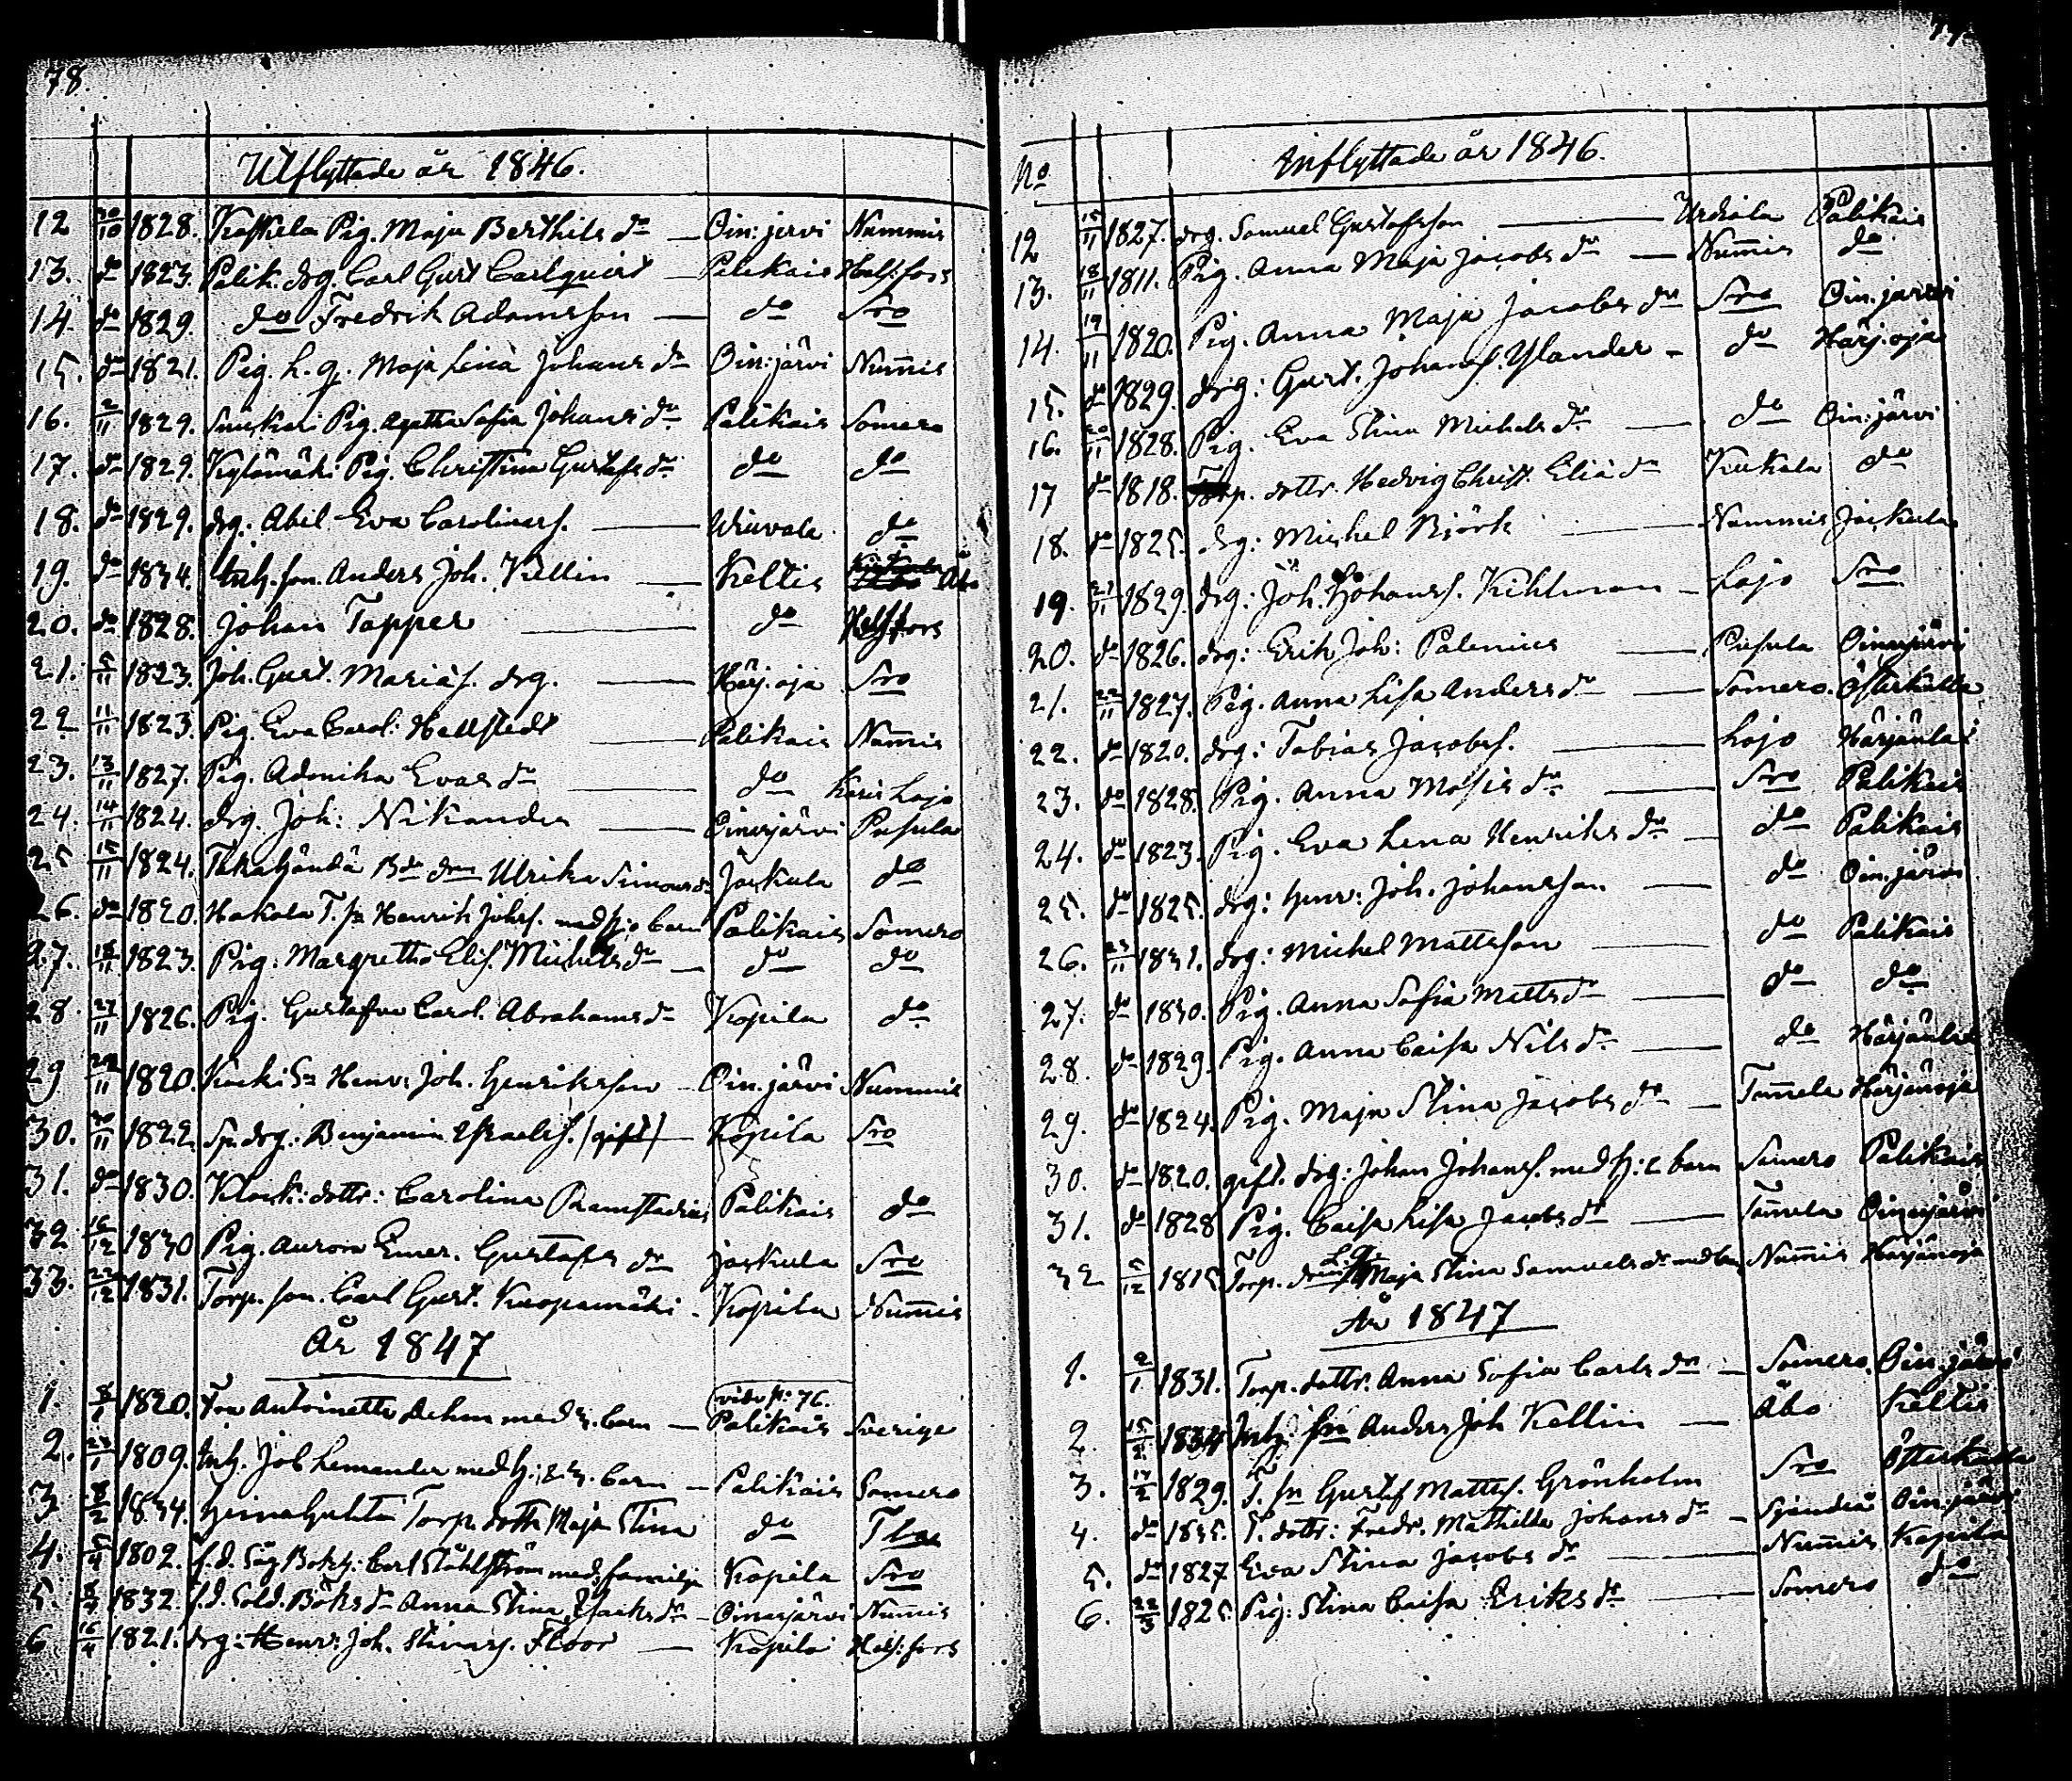 78.
Utflyttade år 1846.
12 30/10 1828. Kaskela Pig. Maja Berthils dr — Oin:jervi Nummis
13. do 1823. Palik. drg. Carl Gust Carlquist — Palikais Hels:fors
14. do 1829. do Fredrik Adamsson — do Sro
15. do 1821. Pig. h. q. Maja Lena Johans dr Oin:järvi Num̄is
16. 2/11 1829. Pig. Agatha Sofia Johans dr Palikais Somero
17. do 1829. Kylämäki Pig. Christina Gustafs dr do do
18. do 1829. drg: Abil Eva Carolinas. — Wiuvala do
19. do 1834. Inh. son. Anders Joh. Kellin — Keltis Åbo
20. do 1828. Johan Tapper — do Helsfors
21. 5/11 1823. Joh. Gust. Mariaś. drg. — Härj.oja Sro
22 11/11 1823. Pig. Eva Carol: Hellstedt — Palikais Num̄is
23. 13/11 1827. Pig. Adonika Evas dr — do Karis Lojo
24. 14/11 1824. drg. Joh: Nikander — Oinasjärvi Pusula
25 15/11 1824. Bde Ulrika Simons dr Jaskula do
26. do 1820. Hakala T. sn Henrik Johss. med h: o barn Palikais Somero
27. 18/11 1823. Pig: Margretha Elis. Michels dr — do do
28. 27/11 1826. Pig. Gustafva Carol. Abrahams dr Kopila do
29 29/11 1820. Sn Henr: Joh. Henriksson — Oin:järvi Nummis
30. 30/11 1822. Sn drg.: Benjamin Israels. /gift/ — Kopila Sro
31. do 1830. Klock: dottr: Carolina Ramstadius Palikais do
32 16/12 1830 Pig. Aurora Emer. Gustafs dr Jaskula Sro
33. 22/12 1831. Torp. son. Carl Gust. Kuopamäki — Kopila Num̄is
År 1847
vide p: 76.
1. 8/1 1820. Fru Antoinette med 3. barn — Palikais Sverige
2. 23/1 1809. Inh. Job Lemander med h: & 3. barn — Palikais Somero
3 8/2 1834. Torp. dottr Maja Stina do
4. 5/4 1802. f. d. Såg Bokh: Carl Ståhlström med familje Kopila Sro
5. 8/4 1832. f. d. Sold. Böks dr Anna Stina Isaks dr — Oinasjärvi Num̄is
6 16/4 1821. drg: Henr: Joh. Stinas. Floor — Kopila Hels:fors
No Inflyttade år 1846.
12 15/11 1827. drg. Samuel Gustafsson — Urdiala Palikais
13. 18/11 1811. Pig. Anna Maja Jacobs dr — Num̄is do
14. 19/11 1820. Pig. Anna Maja Jacobs dr Sro Oin.jarvi
15. do 1829. drg: Gust. Johans. Ylander — do Härj.oja
16. 20/11 1828. Pig. Eva Stina Michels dr — do Oin:järvi
17 do 1818. Torp. dottr. Hedvig Christ. Eliä dr Kuckala do
18. do 1825. drg: Michel Björk — Nummis Jaskula
19. 21/11 1829. drg: Joh. Johanss. Kihlman — Lojo Sro
20. do 1826. drg: Erik Joh: Palenius — Pusula Oinasjärvi
21. 22/11 1827. Pig. Anna Lisa Anders dr — Somero. Österkulla
22. do 1820. drg: Tobias Jacobss. — Lojo Härjänlax
23. do 1828. Pig. Anna Mosis dr — Sro Palikais
24. do 1823. Pig. Eva Lena Henriks dr — do Palikais
25. do 1825. drg: Henr: Joh. Johansson — do Oin.järvi
26. 23/11 1831. drg: Michel Mattsson — do Palikais
27. do 1830. Pig. Anna Sofia Matts dr — do do
28. do 1829. Pig. Anna Caisa Nils dr — do
29. do 1824. Pig. Maja Stina Jacobs dr — Tam̄ela Härjänoja
30. do 1820. gift. drg: Johan Johanss. med h: 2 barn Somero Palikais
31. do 1828 Pig. Caisa Lisa Jacobs dr — Tam̄ela Oinasjärvi
32 5/12 1815 Torp. Maja Stina Samuels dr med barn Num̄is Härjänoja
År 1847
1. 9/1 1831. Torp. dottr. Anna Sofia Carls dr — Somero. Oin.järvi
2. 15/2 1834 Inh: son Anders Joh Kellin — Åbo Keltis
3. 17/2 1829. T. sn Gustaf Mattss. Grönholm Sro Österkulla
4. do 1835. T. dottr: Fredr. Mathilda Johans dr — Sjundeå Oin:järvi
5. do 1827 Eva Stina Jacobs dr — Num̄is Kopila
6. 22/3 1825. Pig: Stina Caisa Eriks dr — Somero do